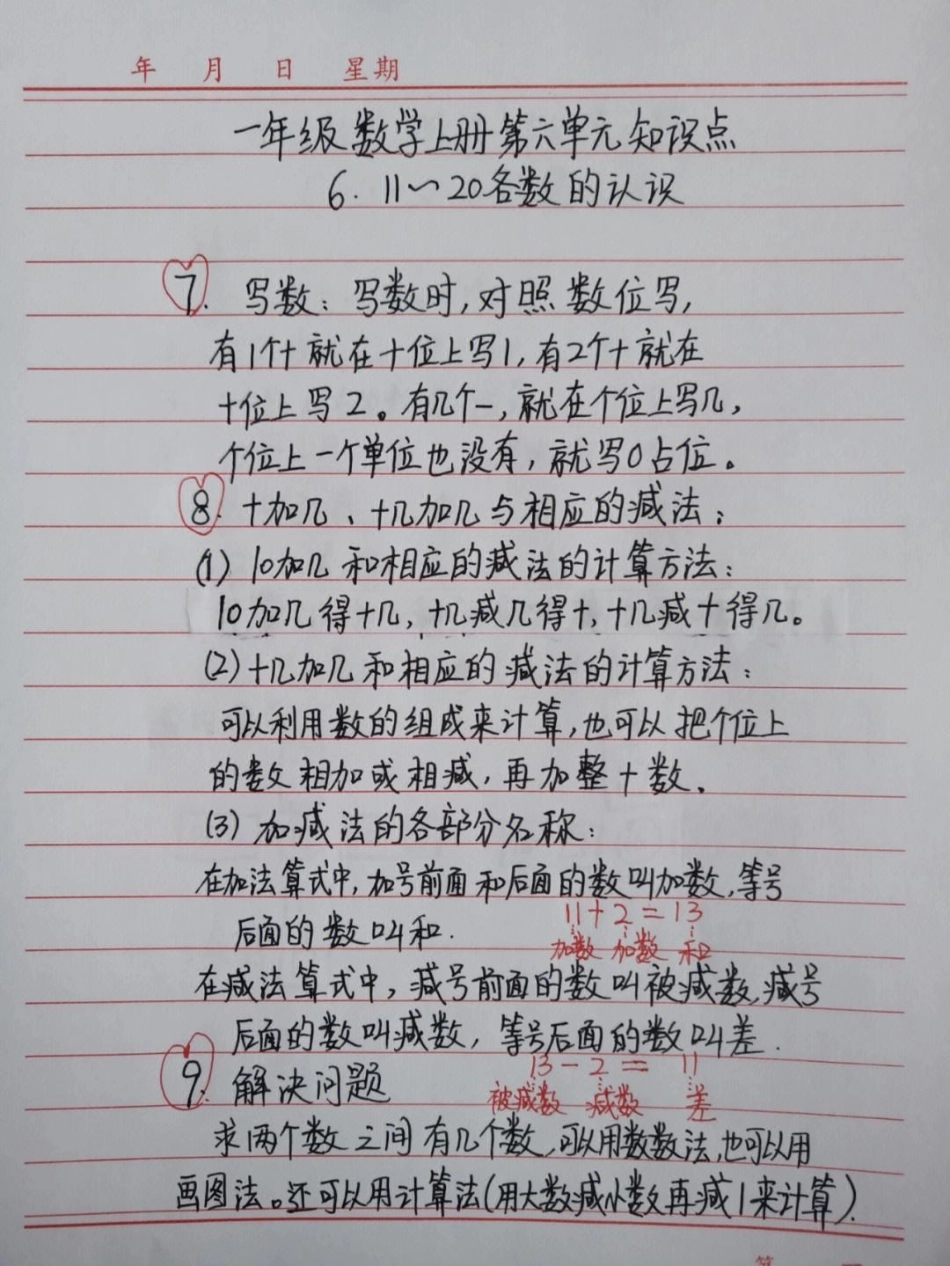 年 月 日 星期
一年级数学上册第六单元知识点
6. 11~20各数的认识
7. 写数：写数时，对照数位写，
有1个十就在十位上写1，有2个十就在
十位上写2。有几个一，就在个位上写几，
个位上一个单位也没有，就写0占位。
8. 十加几、十几加几与相应的减法：
(1) 10加几和相应的减法的计算方法：
10加几得十几，十几减几得十，十几减十得几。
(2) 十几加几和相应的减法的计算方法：
可以利用数的组成来计算，也可以把个位上
的数相加或相减，再加整十数。
(3) 加减法的各部分名称：
在加法算式中，加号前面和后面的数叫加数，等号
后面的数叫和.
11+2=13
加数 加数 和
在减法算式中，减号前面的数叫被减数，减号
后面的数叫减数，等号后面的数叫差.
13-2= 11
被减数 减数 差
9. 解决问题
求两个数之间有几个数，可以用数数法，也可以用
画图法。还可以用计算法(用大数减小数再减1来计算).